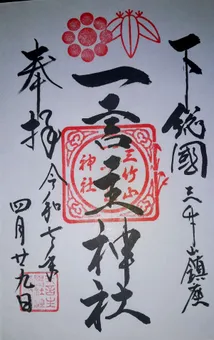 下総國
三竹山鎮座
一言主神社
三竹山
神社
奉拝
令和七年
四月廿九日